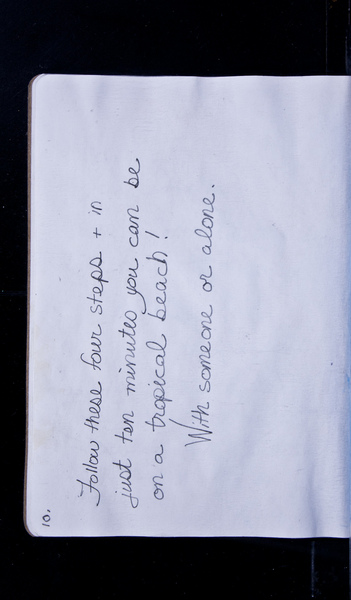 10.
Follow these four steps + in
just ten minutes you can be
on a tropical beach!
With someone or alone.